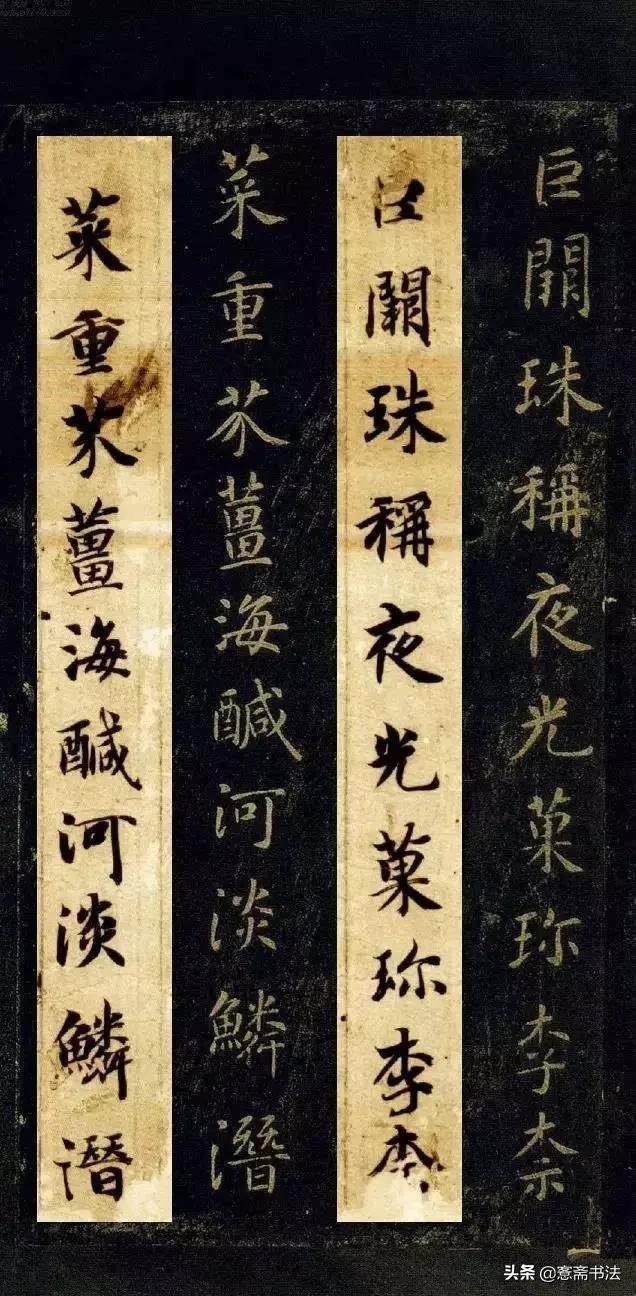 巨闕珠稱夜光菓珎李柰
巨闕珠稱夜光菓珎李柰
菜重芥薑海醎河淡鱗潛
菜重芥薑海醎河淡鱗潛
头条 @惷斋书法